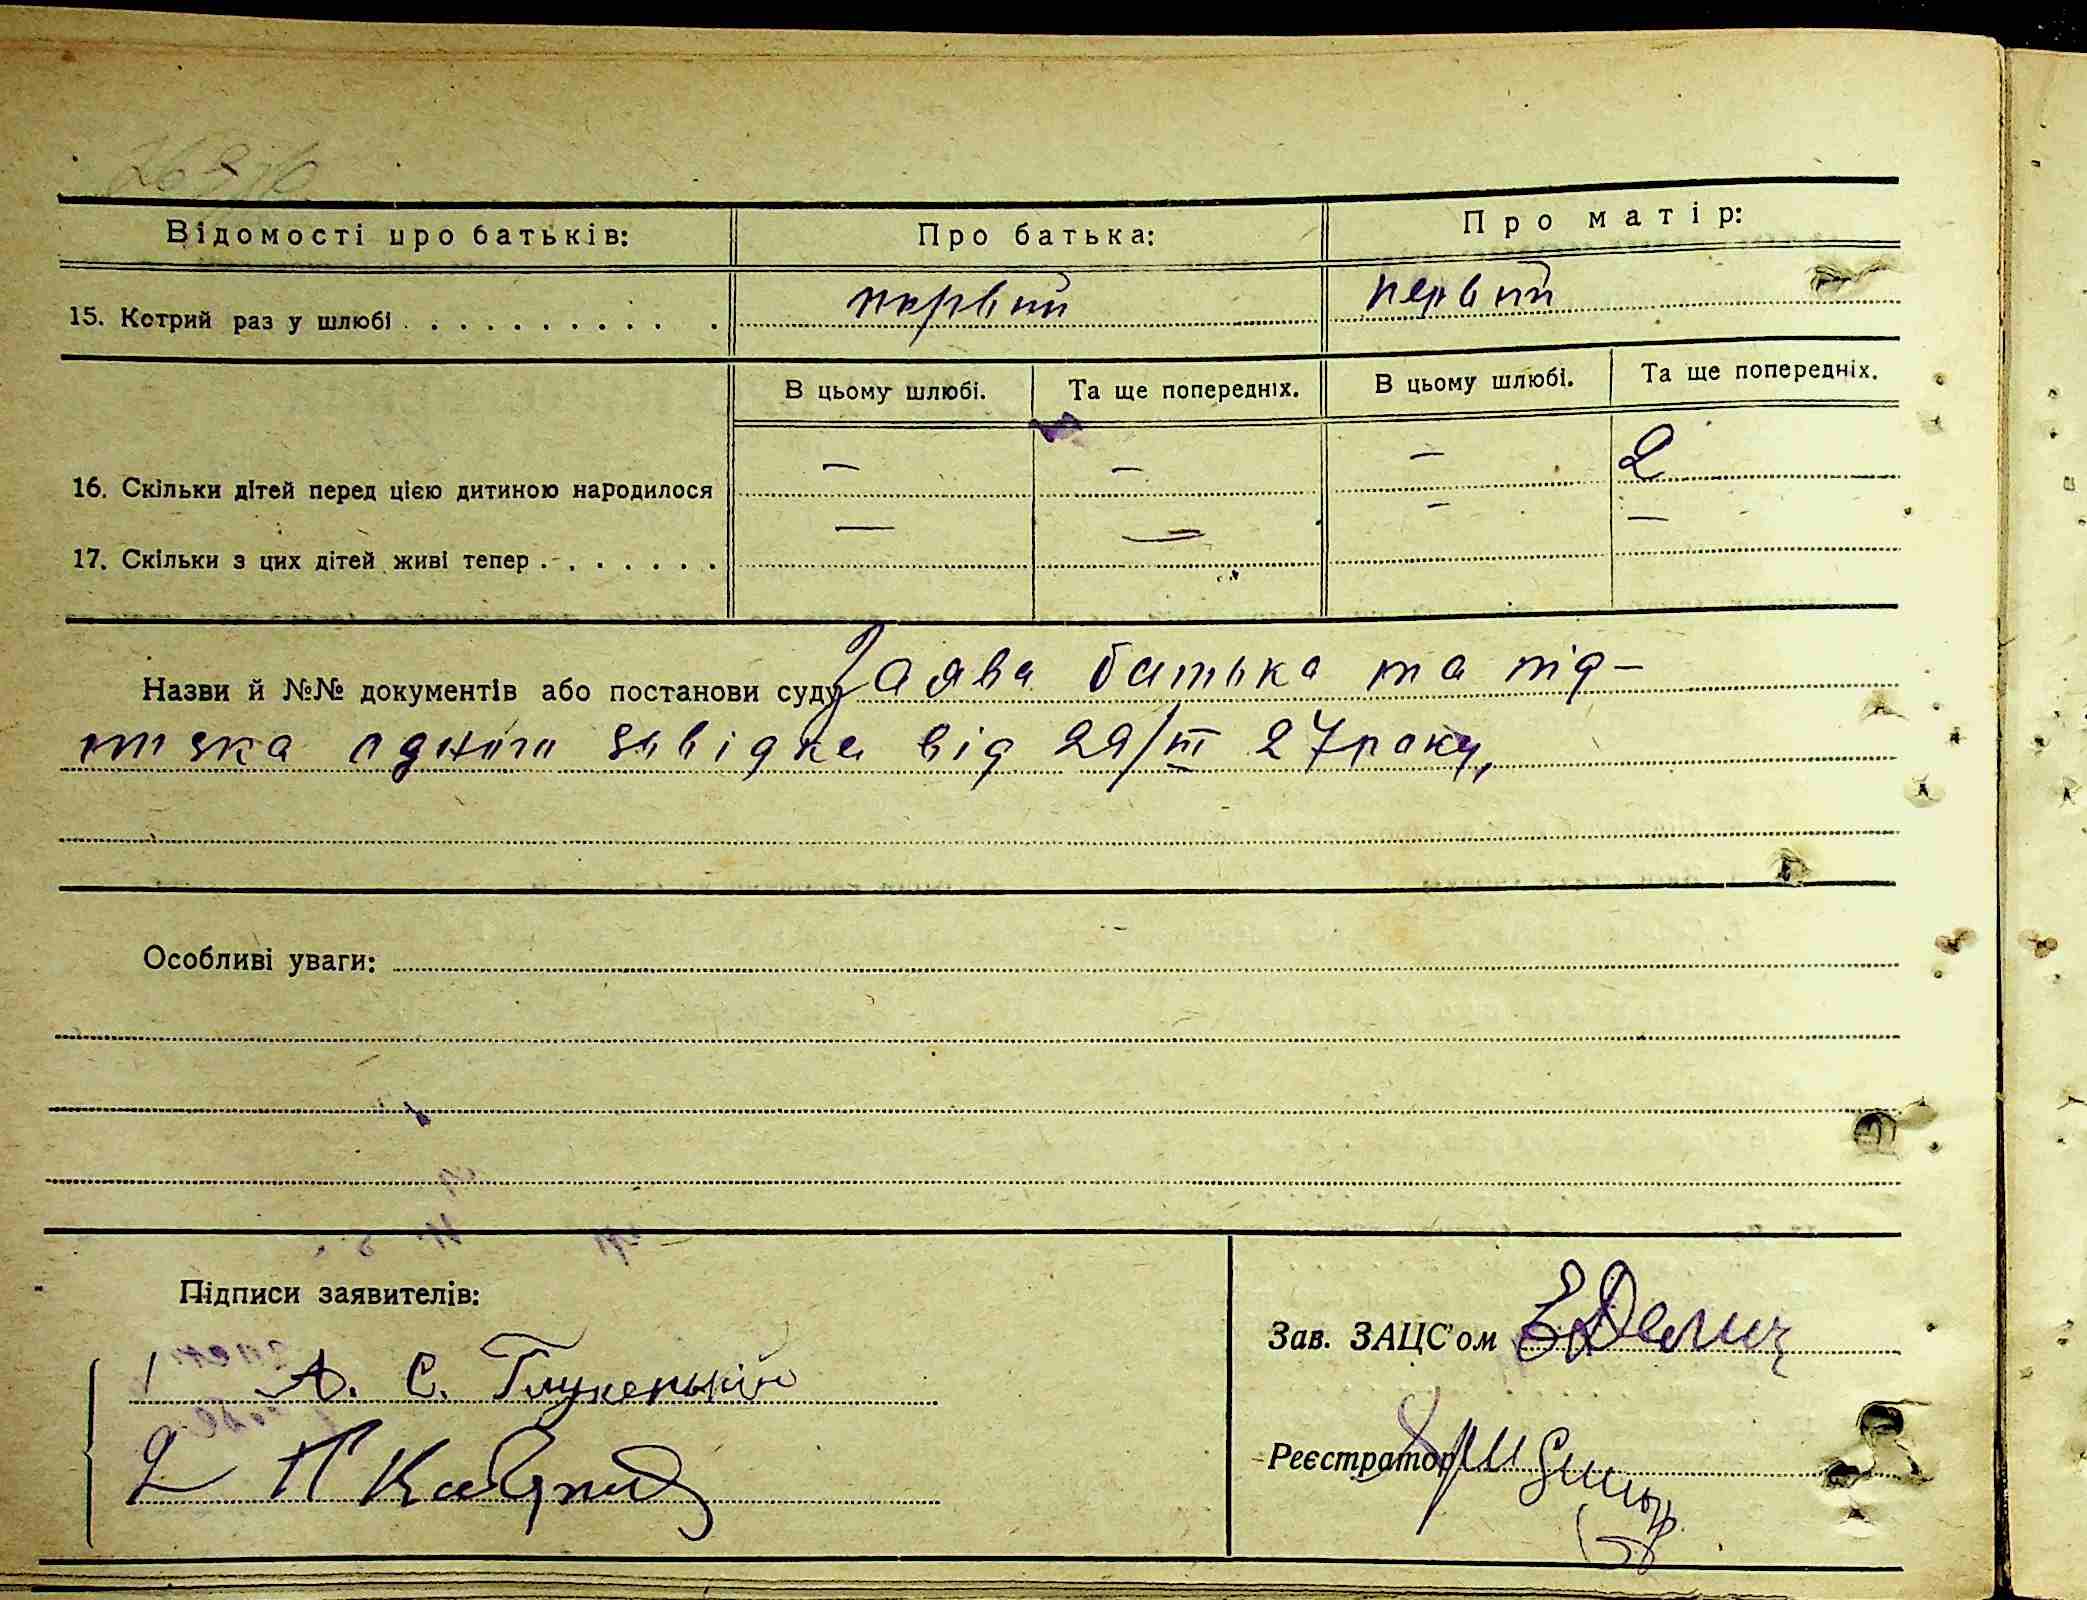 Відомості про батьків: Про батька: Про матір:
15. Котрий раз у шлюбі . . . . . . . . . . . первий первий
В цьому шлюбі. Та ще попередніх. В цьому шлюбі. Та ще попередніх.
16. Скільки дітей перед цією дитиною народилося — — — 2
17. Скільки з цих дітей живі тепер . . . . . . . — — — —
Назви й №№ документів або постанови суду Заява батька та під-
писка одного свідка від 29/III 27 року,
Особливі уваги:
Підписи заявителів: Зав. ЗАЦС'ом
1 А. С.
2
Реєстратор